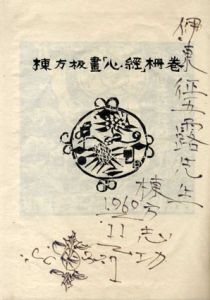 棟方板畫「心經」柵巻
伊東五露先生
棟方志功
1960
11
27